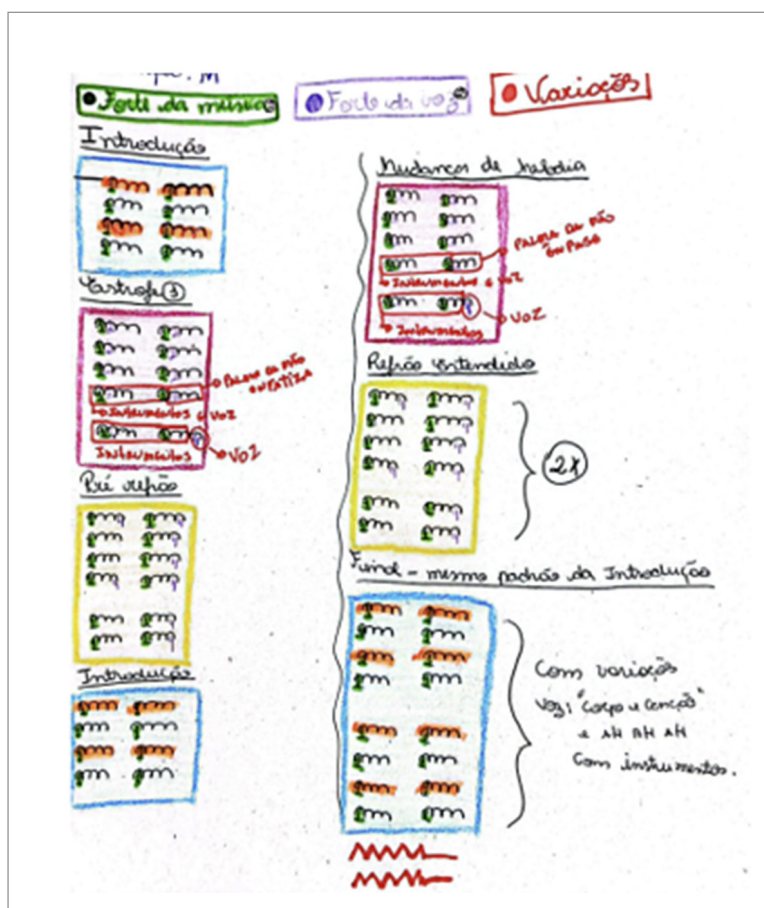 Forte da música
Forte da voz
Variações
Introdução
Estrofe 1
PALMA DA MÃO
Instrumentos e VOZ
Instrumentos
VOZ
Pré refrão
Introdução
Mudanças de melodia
PALMA DA MÃO
EM PAUSA
Instrumentos e VOZ
VOZ
Instrumentos
Refrão estendido
2x
Final - mesmo padrão da Introdução
Com variações
Voz: "Corpo e Canção"
e AH AH AH
Com instrumentos.